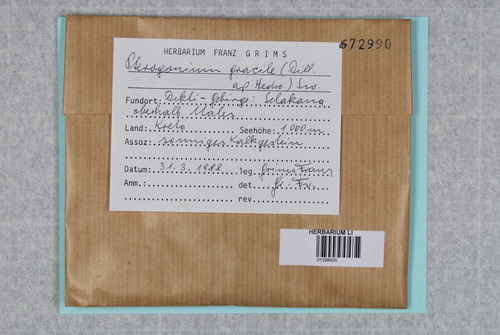 HERBARIUM FRANZ GRIMS
672990
Pterogonium gracile (Dill.
ap Hedw.) Sm.
Fundort: Dikti-Gebirge: Selakano
oberhalb Males
Land: Kreta Seehöhe: 1000 m
Assoz: sonniges Kalkgestein
Datum: 31.3.1988 leg. Grims Franz
Anm.: det. Gr. Fr.
rev.
HERBARIUM LI